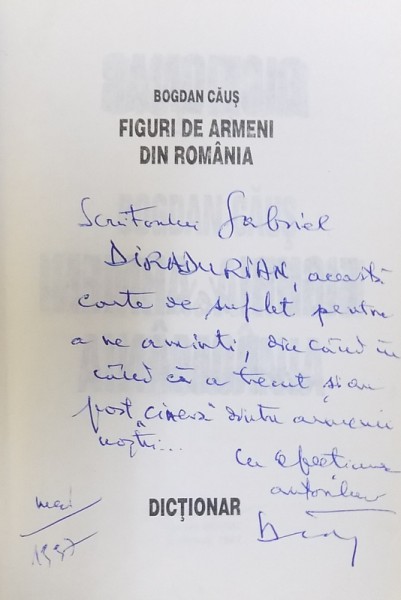 BOGDAN CĂUȘ
FIGURI DE ARMENI
DIN ROMÂNIA
Scriitorului Gabriel
DIRADURIAN, această
carte de suflet pentru
a ne aminti, din când în
când că a trecut și au
fost "cineva" dintre armenii
noștri...
Cu afecțiunea
autorului
mai
1997
DICȚIONAR